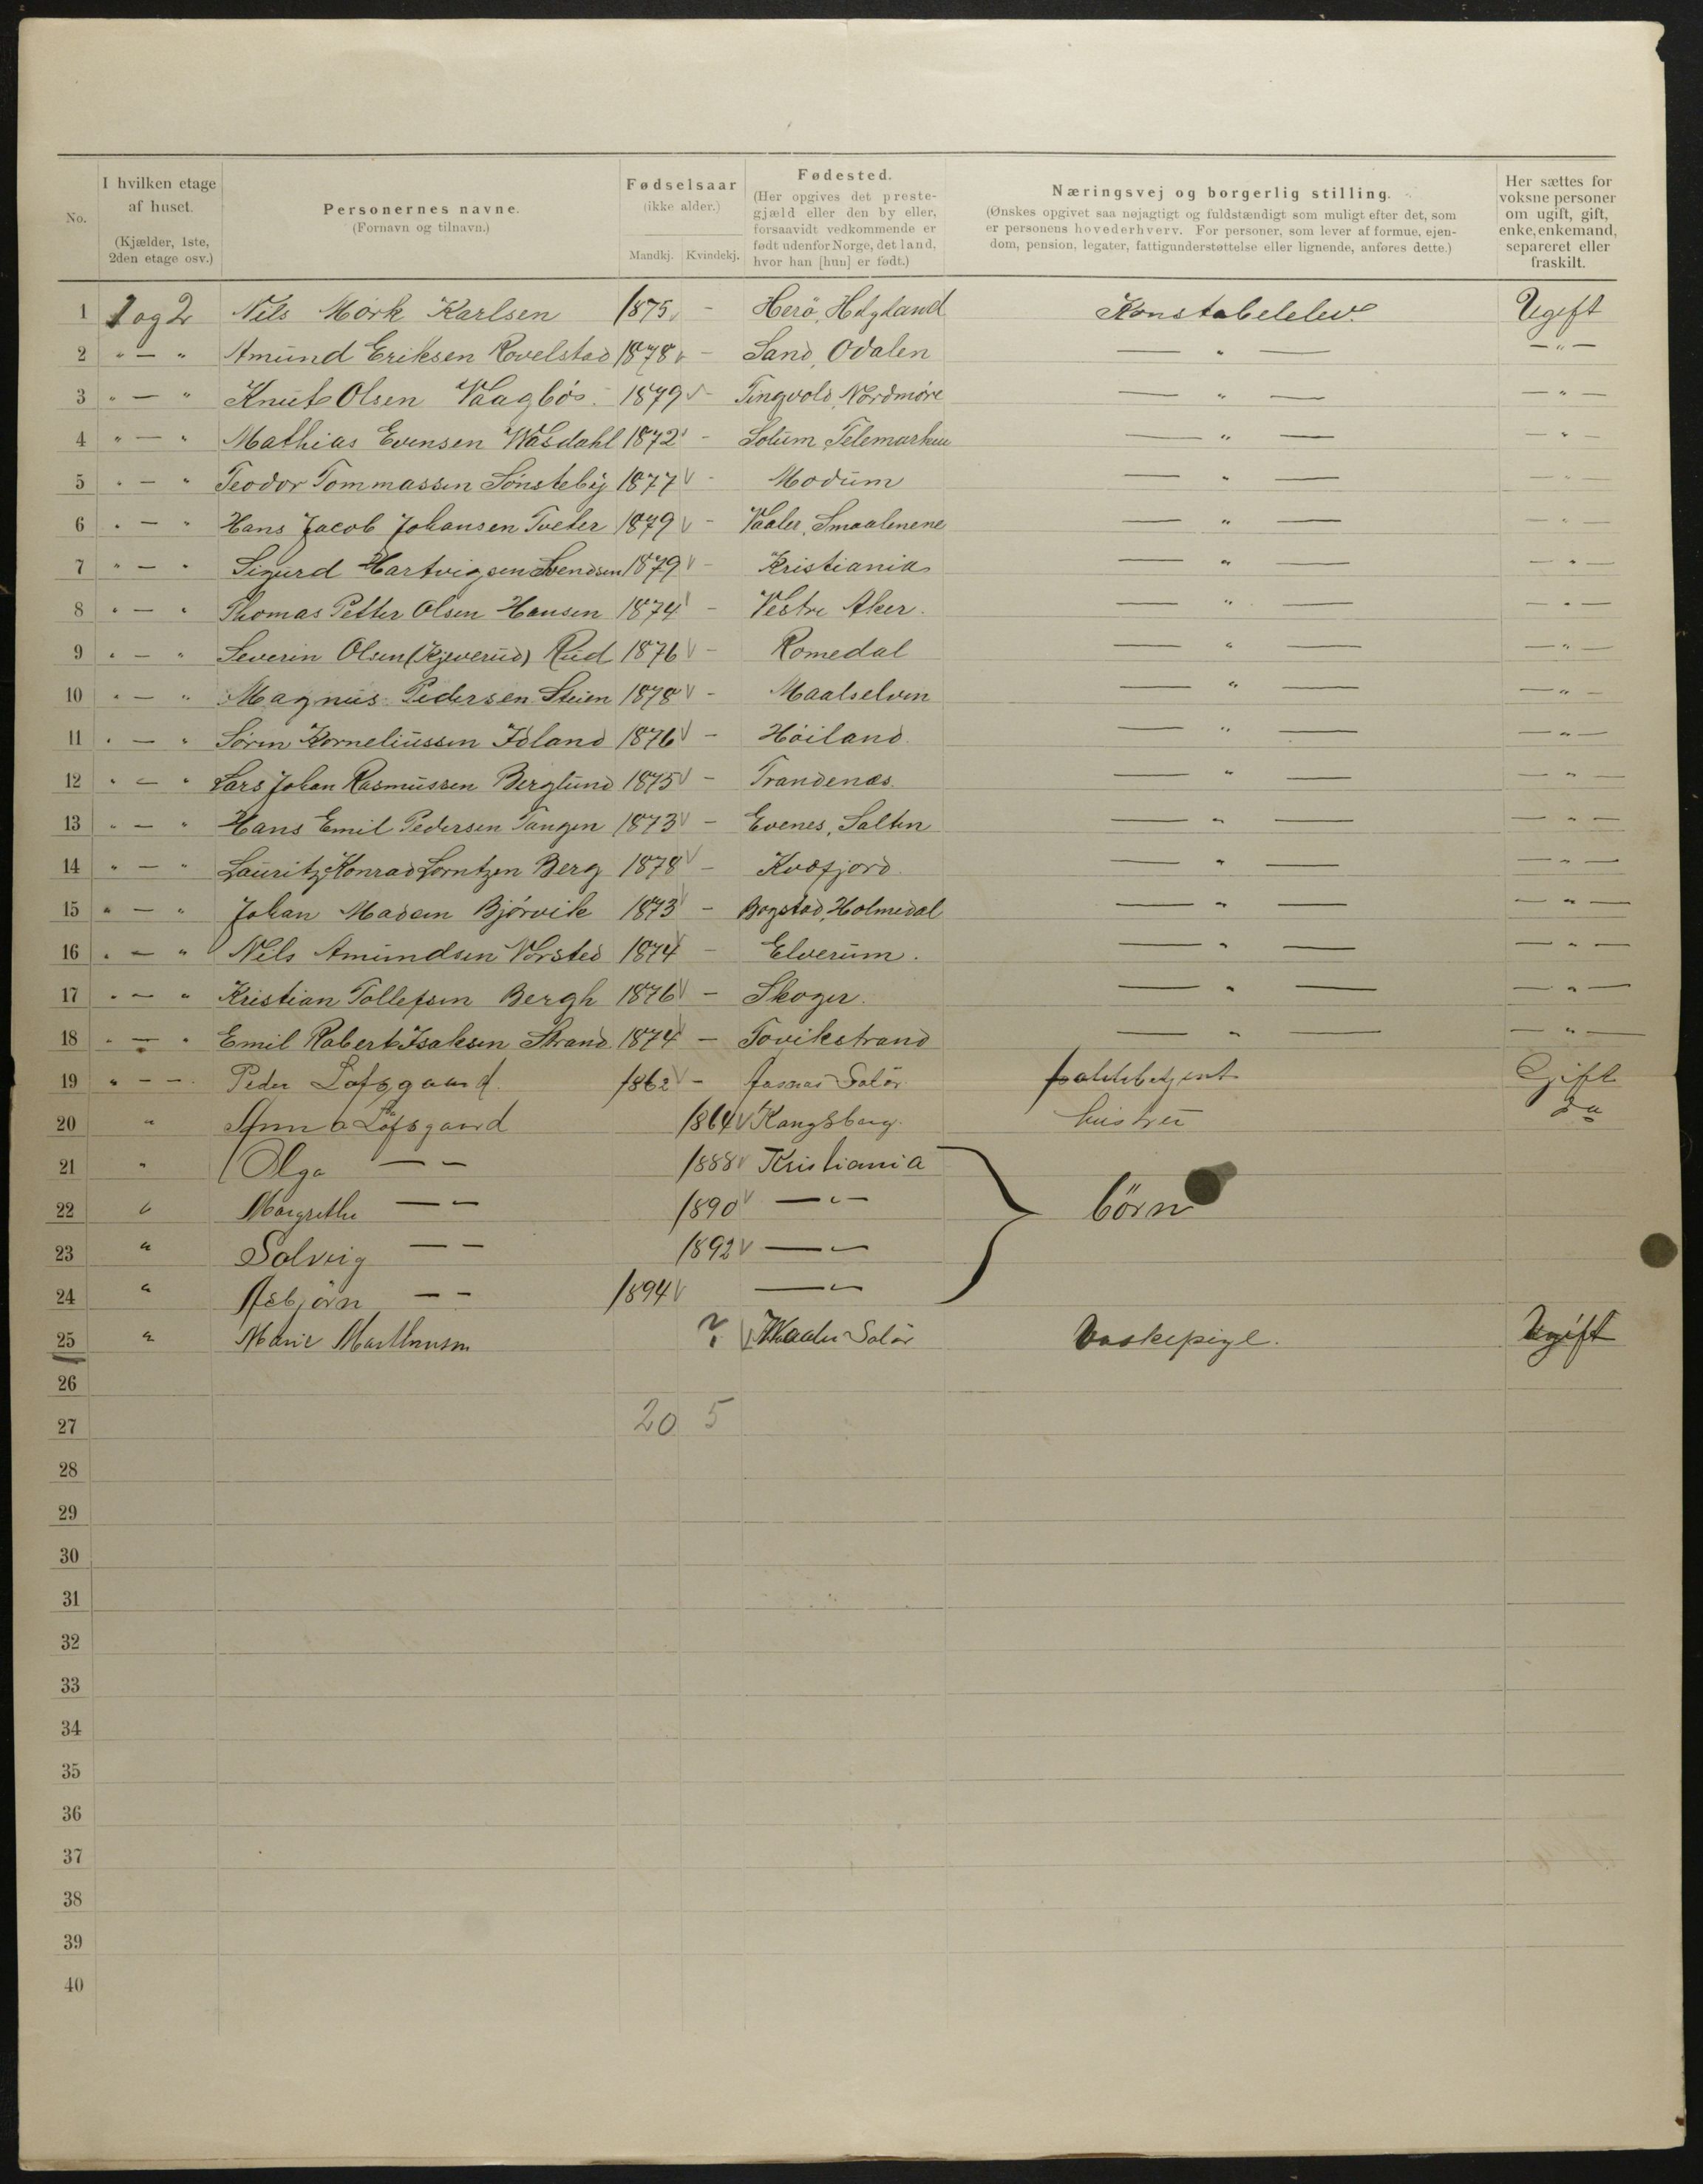 No.
I hvilken etage
af huset.
(Kjælder, 1ste,
2den etage osv.)
Personernes navne.
(Fornavn og tilnavn.)
Fødselsaar
(ikke alder.)
Mandkj. Kvindekj.
Fødested.
(Her opgives det preste-
gjæld eller den by eller,
forsaavidt vedkommende er
født udenfor Norge, det land,
hvor han [hun] er født.)
Næringsvej og borgerlig stilling.
(Ønskes opgivet saa nøjagtigt og fuldstændigt som muligt efter det, som
er personens hovederhverv. For personer, som lever af formue, ejen-
dom, pension, legater, fattigunderstøttelse eller lignende, anføres dette.)
Her sættes for
voksne personer
om ugift, gift,
enke, enkemand,
separeret eller
fraskilt.
1 1 og 2 Nils Mörk Karlsen 1875 - Herö, Helgeland Konstabelelev. Ugift
2 " — " Amund Eriksen Rovelstad 1878 - Sand, Odalen — " — — " —
3 " — " Knut Olsen Vaagbös. 1879 - Tingvold, Nordmøre — " — — " —
4 " — " Mathias Evensen 1872 - Telemarken — " — — " —
5 " — " Teodor Tommassen Sönsteby 1877 - Modum — " — — " —
6 " — " Hans Jacob Johansen Tveter 1879 - Vaaler, Smaalenene — " — — " —
7 " — " Sigurd Hartvigsen Svendsen 1879 - Kristiania — " — — " —
8 " — " Thomas Petter Olsen Hansen 1874 - Vestre Aker. — " — — " —
9 " — " Severin Olsen (Kjeverud) Rud 1876 - Romedal — " — — " —
10 " — " Magnus Pedersen Steien 1878 - Maalselven — " — — " —
11 " — " Sören Korneliussen Idland 1876 - Höiland — " — — " —
12 " — " Lars Johan Rasmussen Berglund 1875 - Trandenæs — " — — " —
13 " — " Hans Emil Pedersen Tangen 1873 - Evenes, Salten — " — — " —
14 " — " Lauritz Konrad Lorntzen Berg 1878 - Kvæfjord. — " — — " —
15 " — " Johan Madsen Bjørvik 1873 - Bogstad, Holmedal — " — — " —
16 " — " Nils Amundsen Vorsted 1874 - Elverum. — " — — " —
17 " — " Kristian Tollefsen Bergh 1876 - Skoger. — " — — " —
18 " — " Emil Robert Isaksen Strand 1874 - Tovikstrand — " — — " —
19 " — — Peder Löfsgaard 1862 - Aasnæs Solör Gift
20 " Anna Löfsgaard 1864 Kongsberg. hustru do
21 " Olga — — 1888 Kristiania
22 " Margrethe — — 1890 — " — börn
23 " Solveig — — 1892 — " —
24 " Asbjörn — — 1894 — " —
25 " Marie Marthinsen ? Vaaler Solör Vaskepige. Ugift
26
27 20 5
28
29
30
31
32
33
34
35
36
37
38
39
40